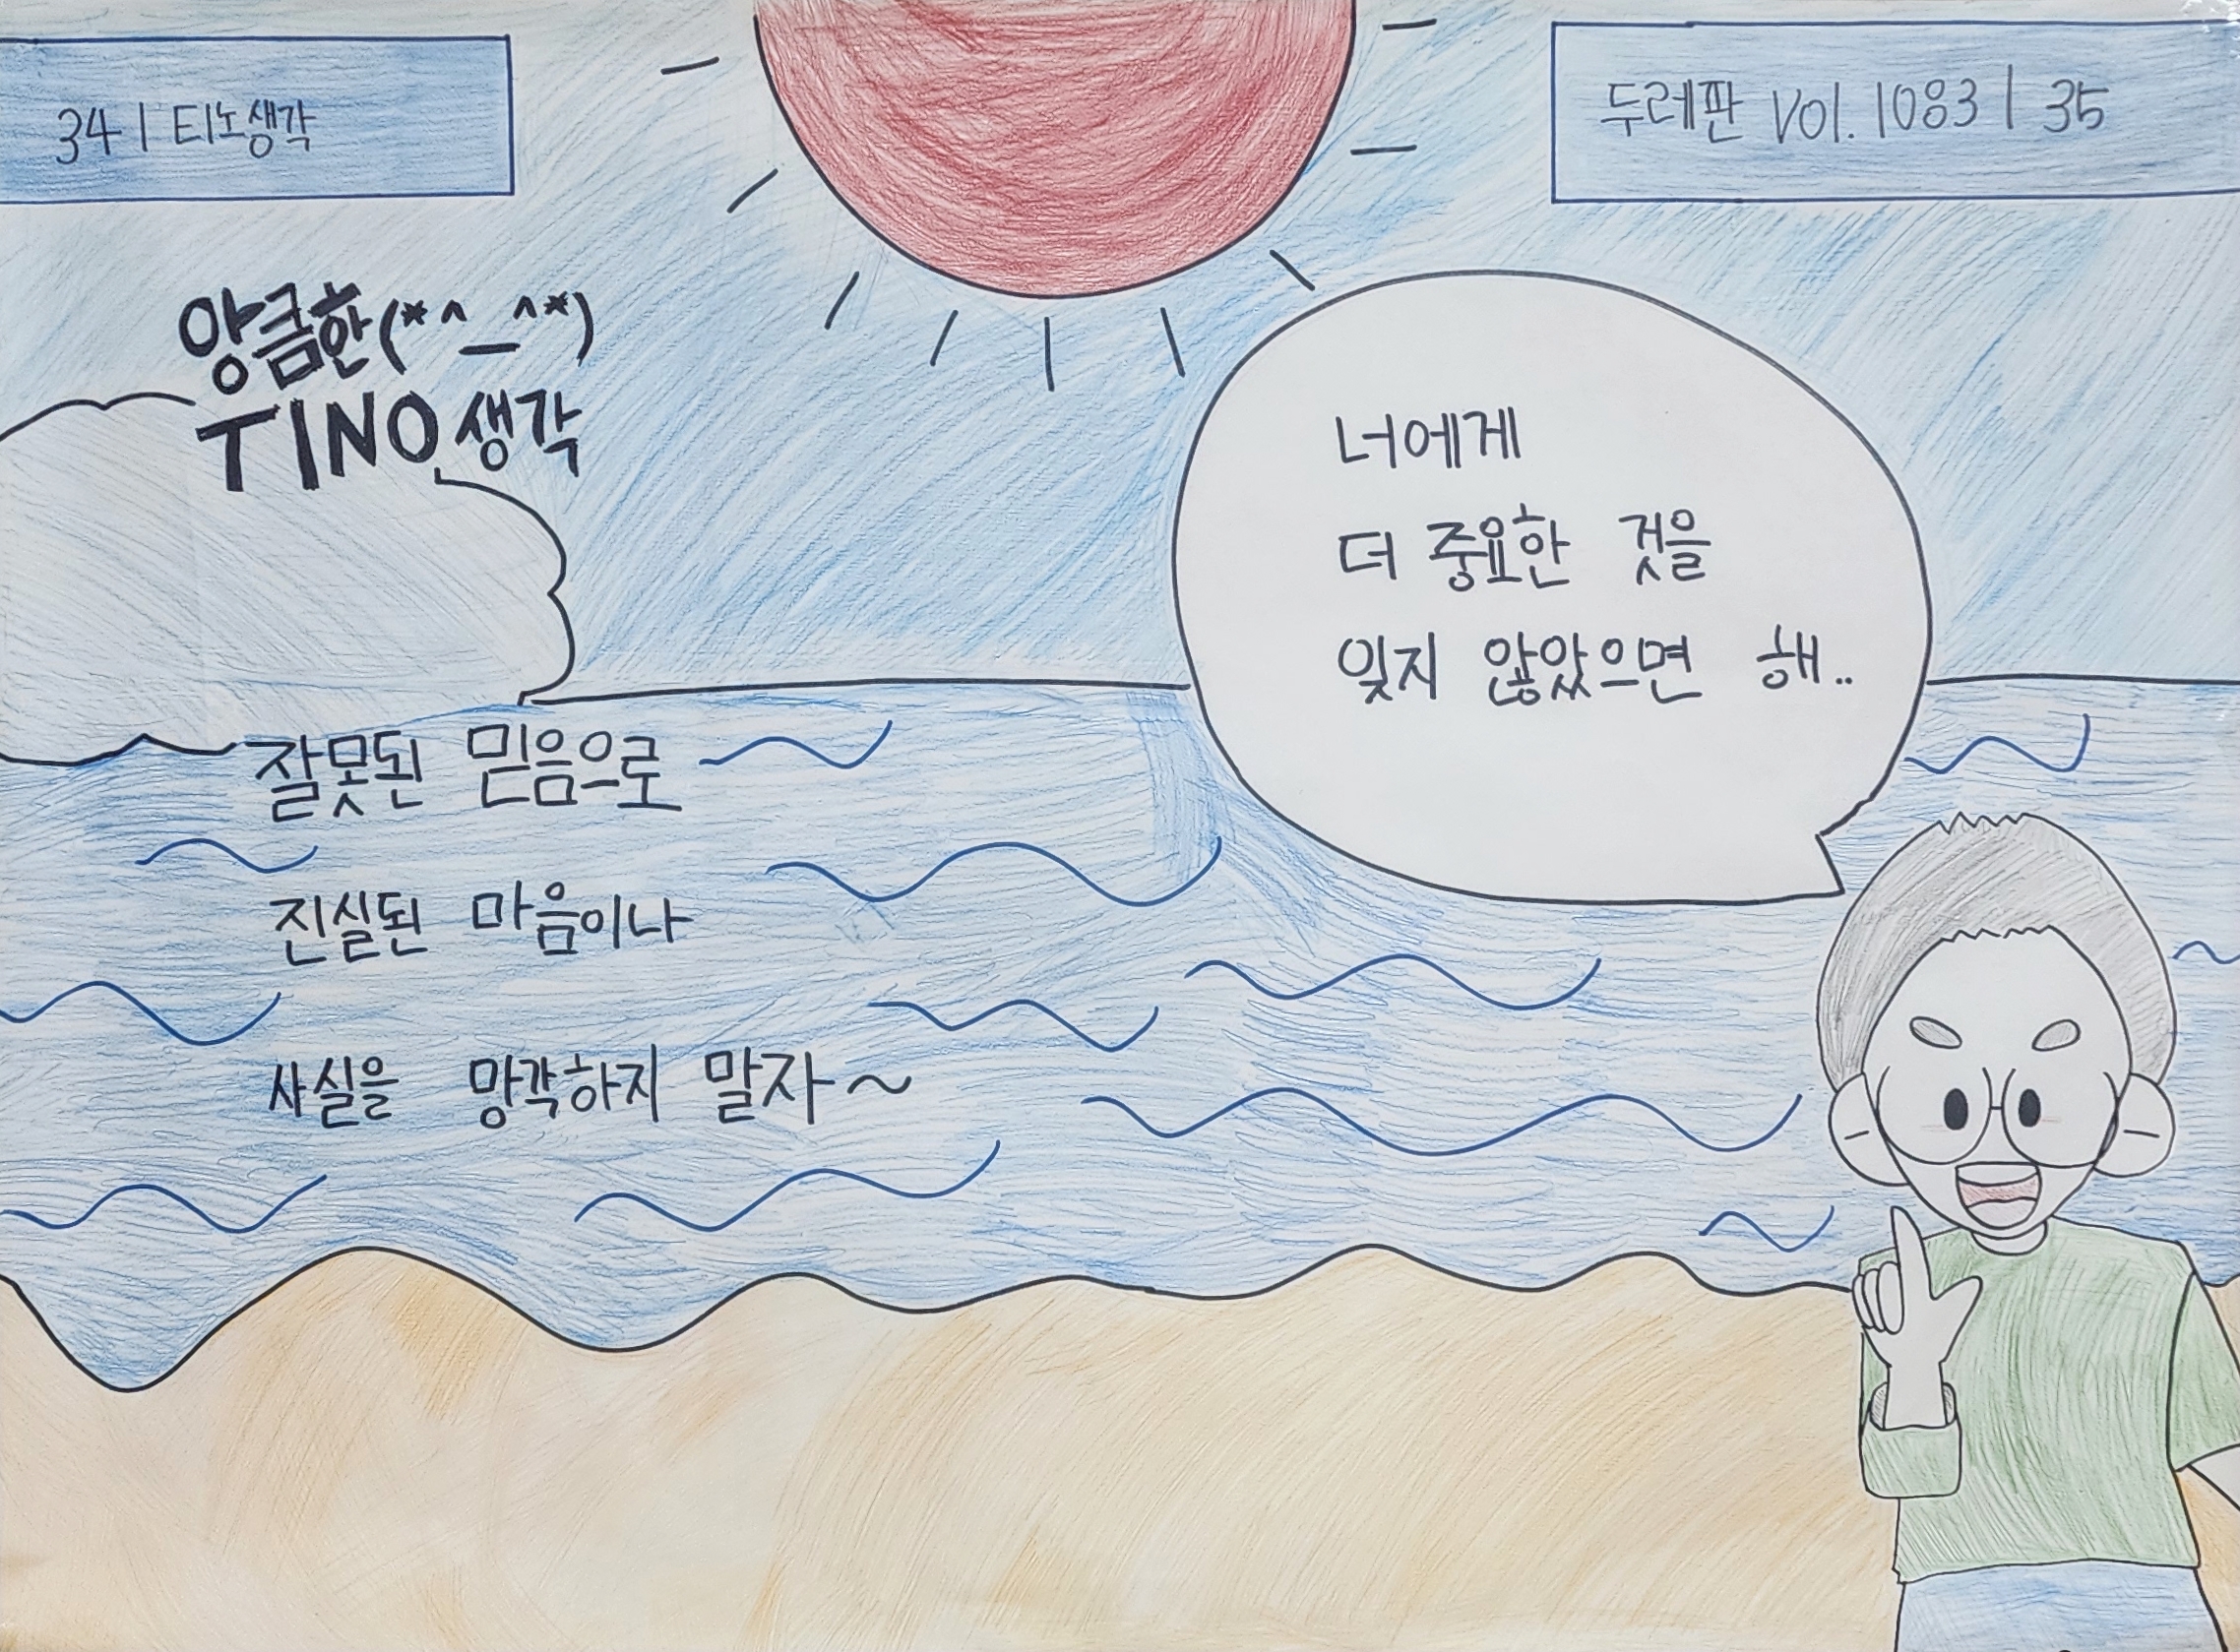 34 | 티노생각
두레판 Vol. 1083 | 35
앙큼한(*^_^*)
TINO 생각
너에게
더 중요한 것을
잊지 않았으면 해..
잘못된 믿음으로
진실된 마음이나
사실을 망각하지 말자~